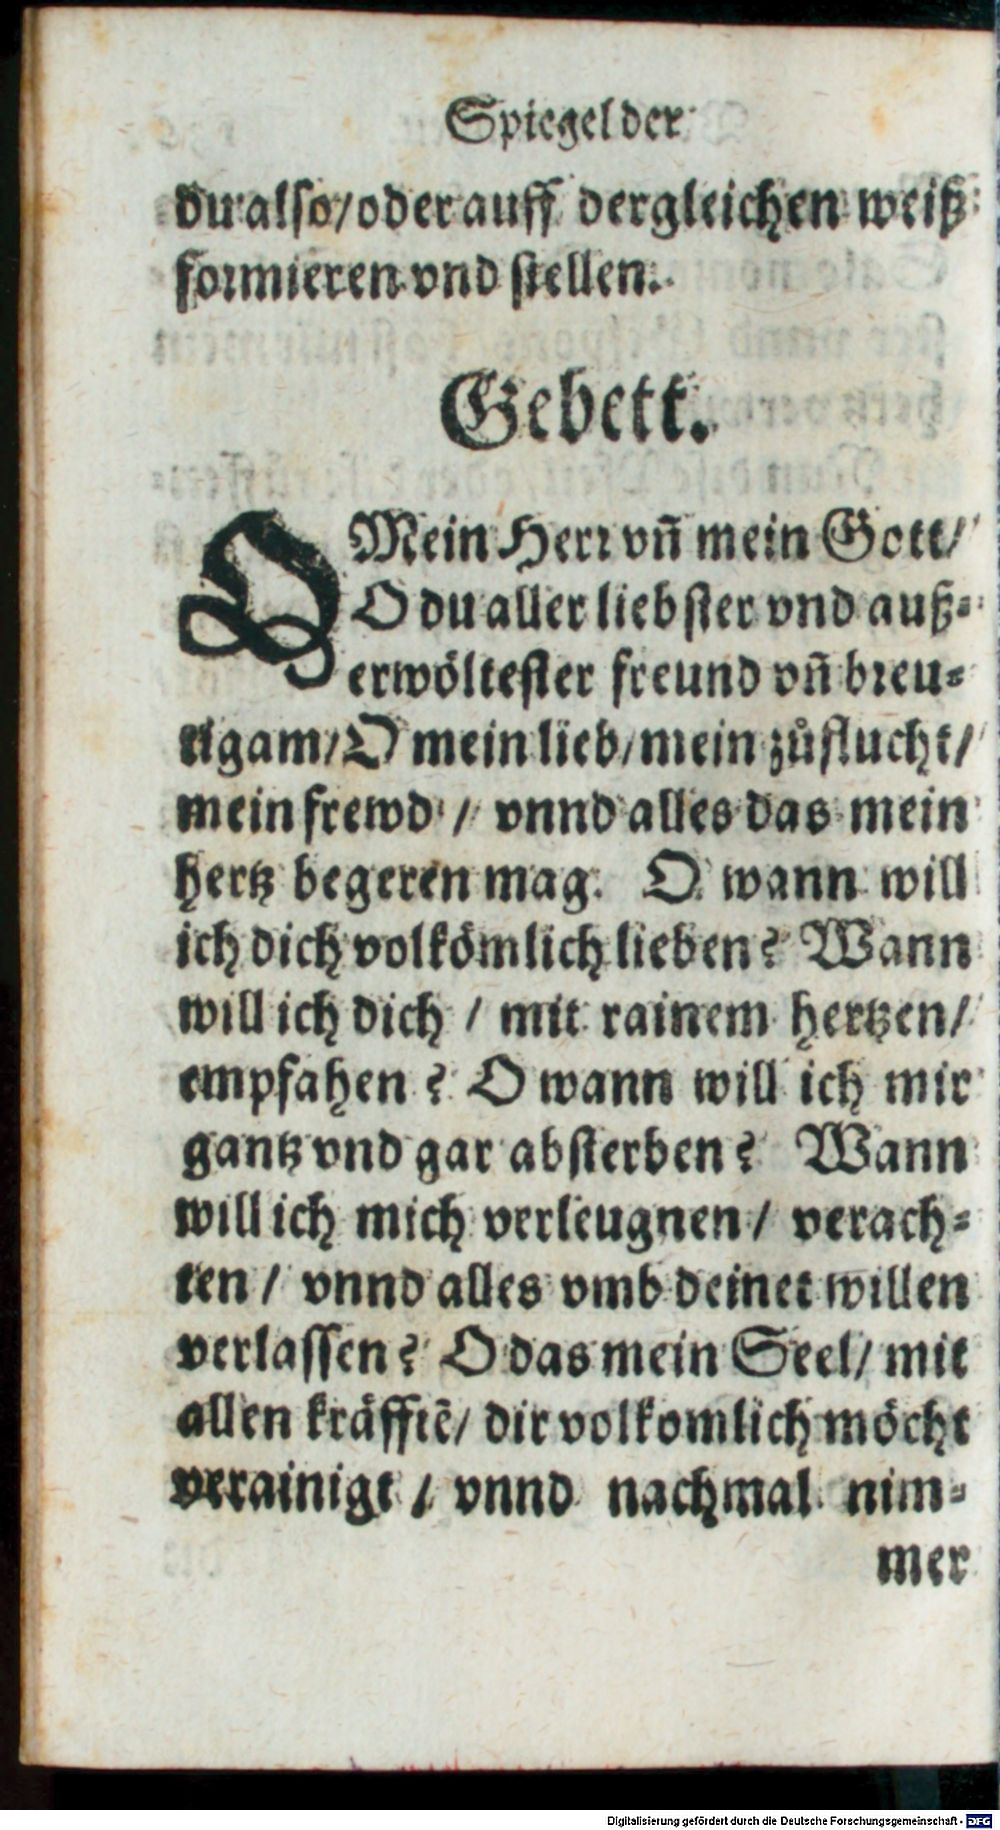 Spiegel der
du also/oder auff dergleichen weiß
formieren vnd stellen.
Gebett.
O Mein Herr vñ mein Gott/
O du aller liebster vnd auß-
erwöltester freund vñ breu-
tigam/O mein lieb/mein zůflucht/
mein frewd / vnnd alles das mein
hertz begeren mag. O wann will
ich dich volkömlich lieben? Wann
will ich dich / mit rainem hertzen/
empfahen? O wann will ich mir
gantz vnd gar absterben? Wann
will ich mich verleugnen / verach-
ten / vnnd alles vmb deinet willen
verlassen? O das mein Seel/ mit
allen kräfftē/ dir volkomlich möcht
verainigt / vnnd nachmal nim-
mer
Digitalisierung gefördert durch die Deutsche Forschungsgemeinschaft - DFG